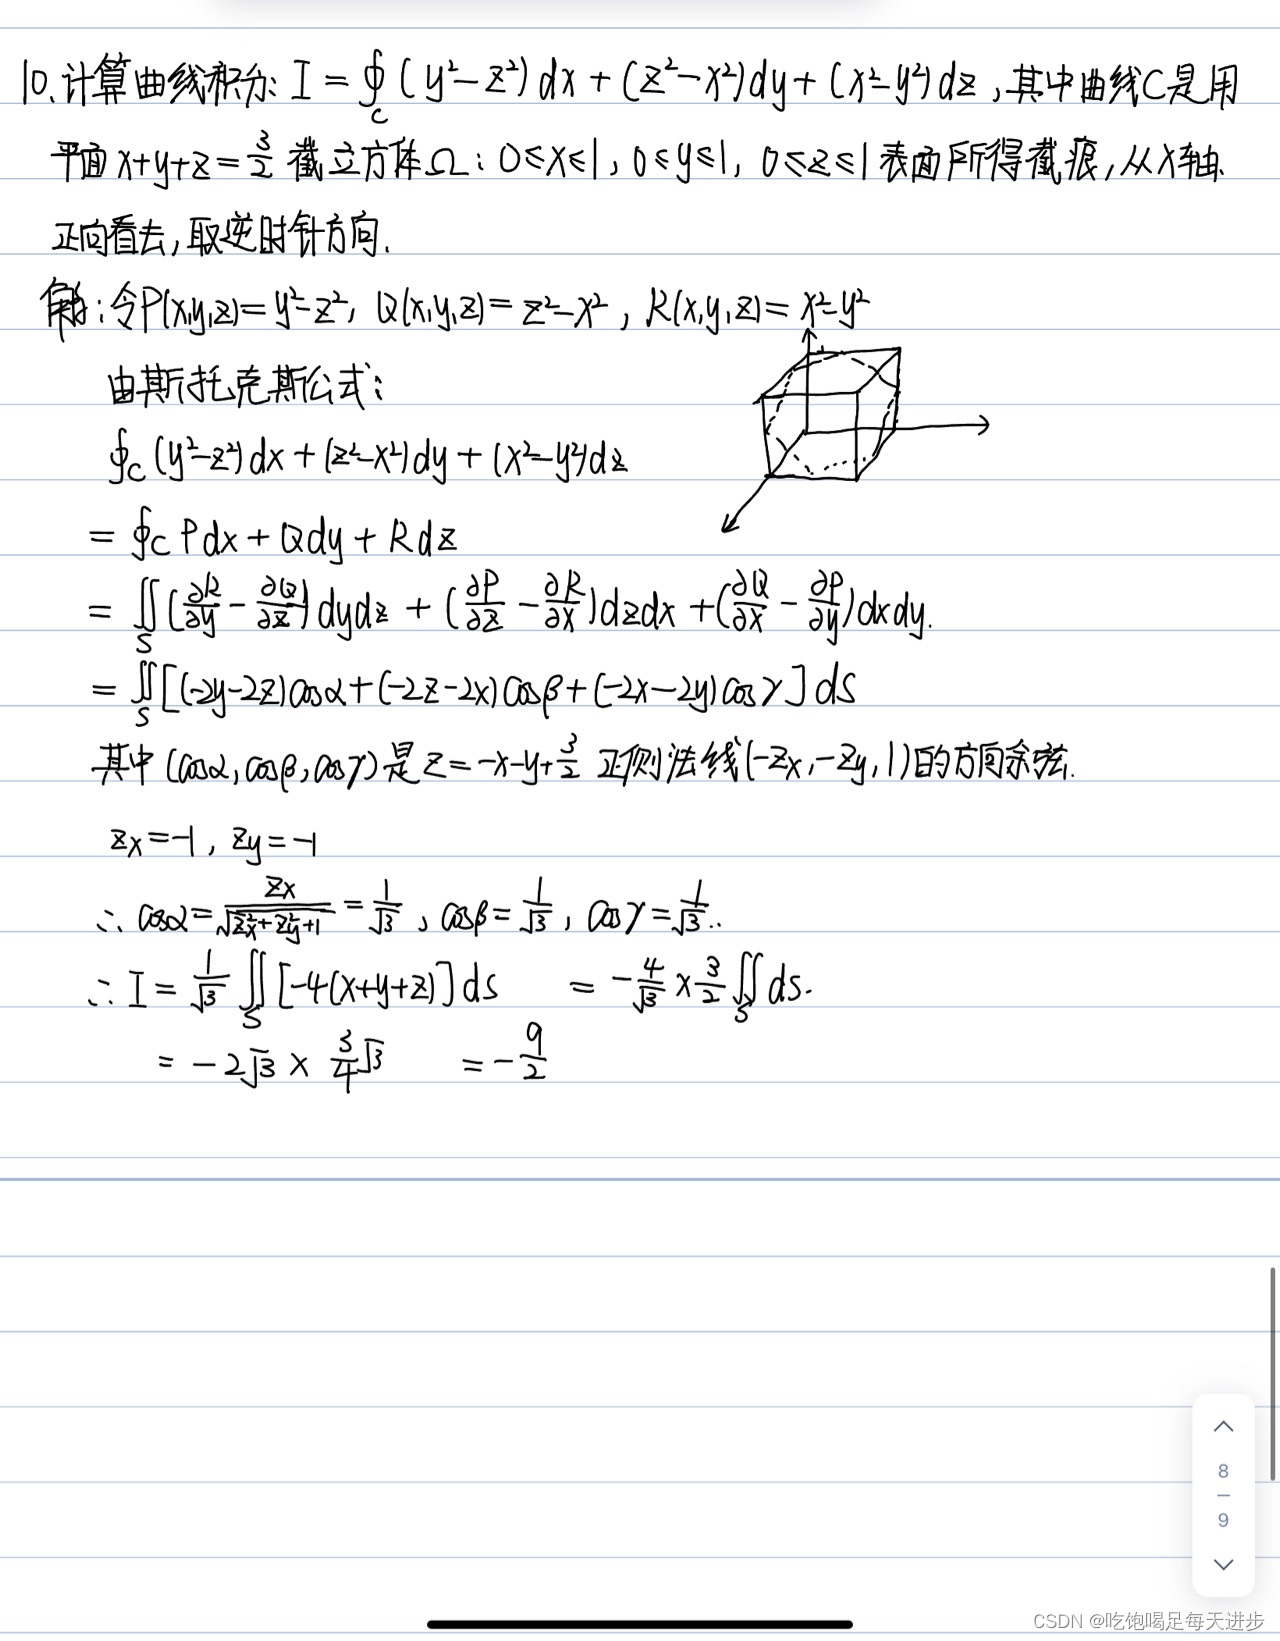 10.计算曲线积分: I = ∮_C (y²-z²)dx+(z²-x²)dy+(x²-y²)dz,其中曲线C是用
平面 x+y+z=3/2 截立方体Ω: 0≤x≤1, 0≤y≤1, 0≤z≤1表面所得截痕,从X轴
正向看去,取逆时针方向.
解:令P(x,y,z)=y²-z², Q(x,y,z)=z²-x², R(x,y,z)=x²-y²
由斯托克斯公式:
∮_C (y²-z²)dx+(z²-x²)dy+(x²-y²)dz
= ∮_C Pdx+Qdy+Rdz
= ∬_S (∂R/∂y - ∂Q/∂z)dydz + (∂P/∂z - ∂R/∂x)dzdx + (∂Q/∂x - ∂P/∂y)dxdy.
= ∬_S [(-2y-2z)cosα+(-2z-2x)cosβ+(-2x-2y)cosγ]ds
其中(cosα,cosβ,cosγ)是z=-x-y+3/2 正侧法线(-zx,-zy,1)的方向余弦.
zx=-1, zy=-1
∴ cosα=zx/√(zx²+zy²+1)=1/√3, cosβ=1/√3, cosγ=1/√3..
∴ I = 1/√3 ∬_S [-4(x+y+z)]ds = -4/√3 × 3/2 ∬_S ds.
= -2√3 × 3/4 √3 = -9/2
8
9
CSDN @吃饱喝足每天进步